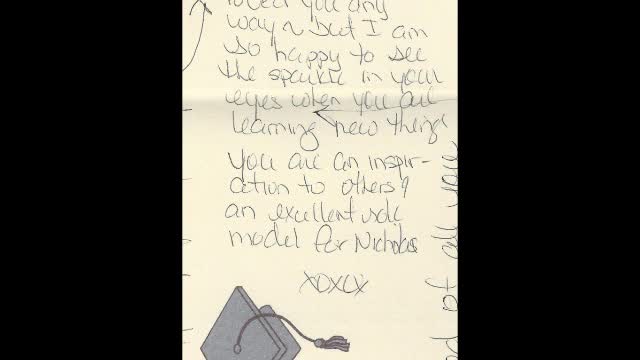 loved you any
way ~ but I am
so happy to see
the sparkle in your
eyes when you are
learning new things
you are an inspir-
ation to others &
an excellent role
model for Nicholas
XOXOX
of all your